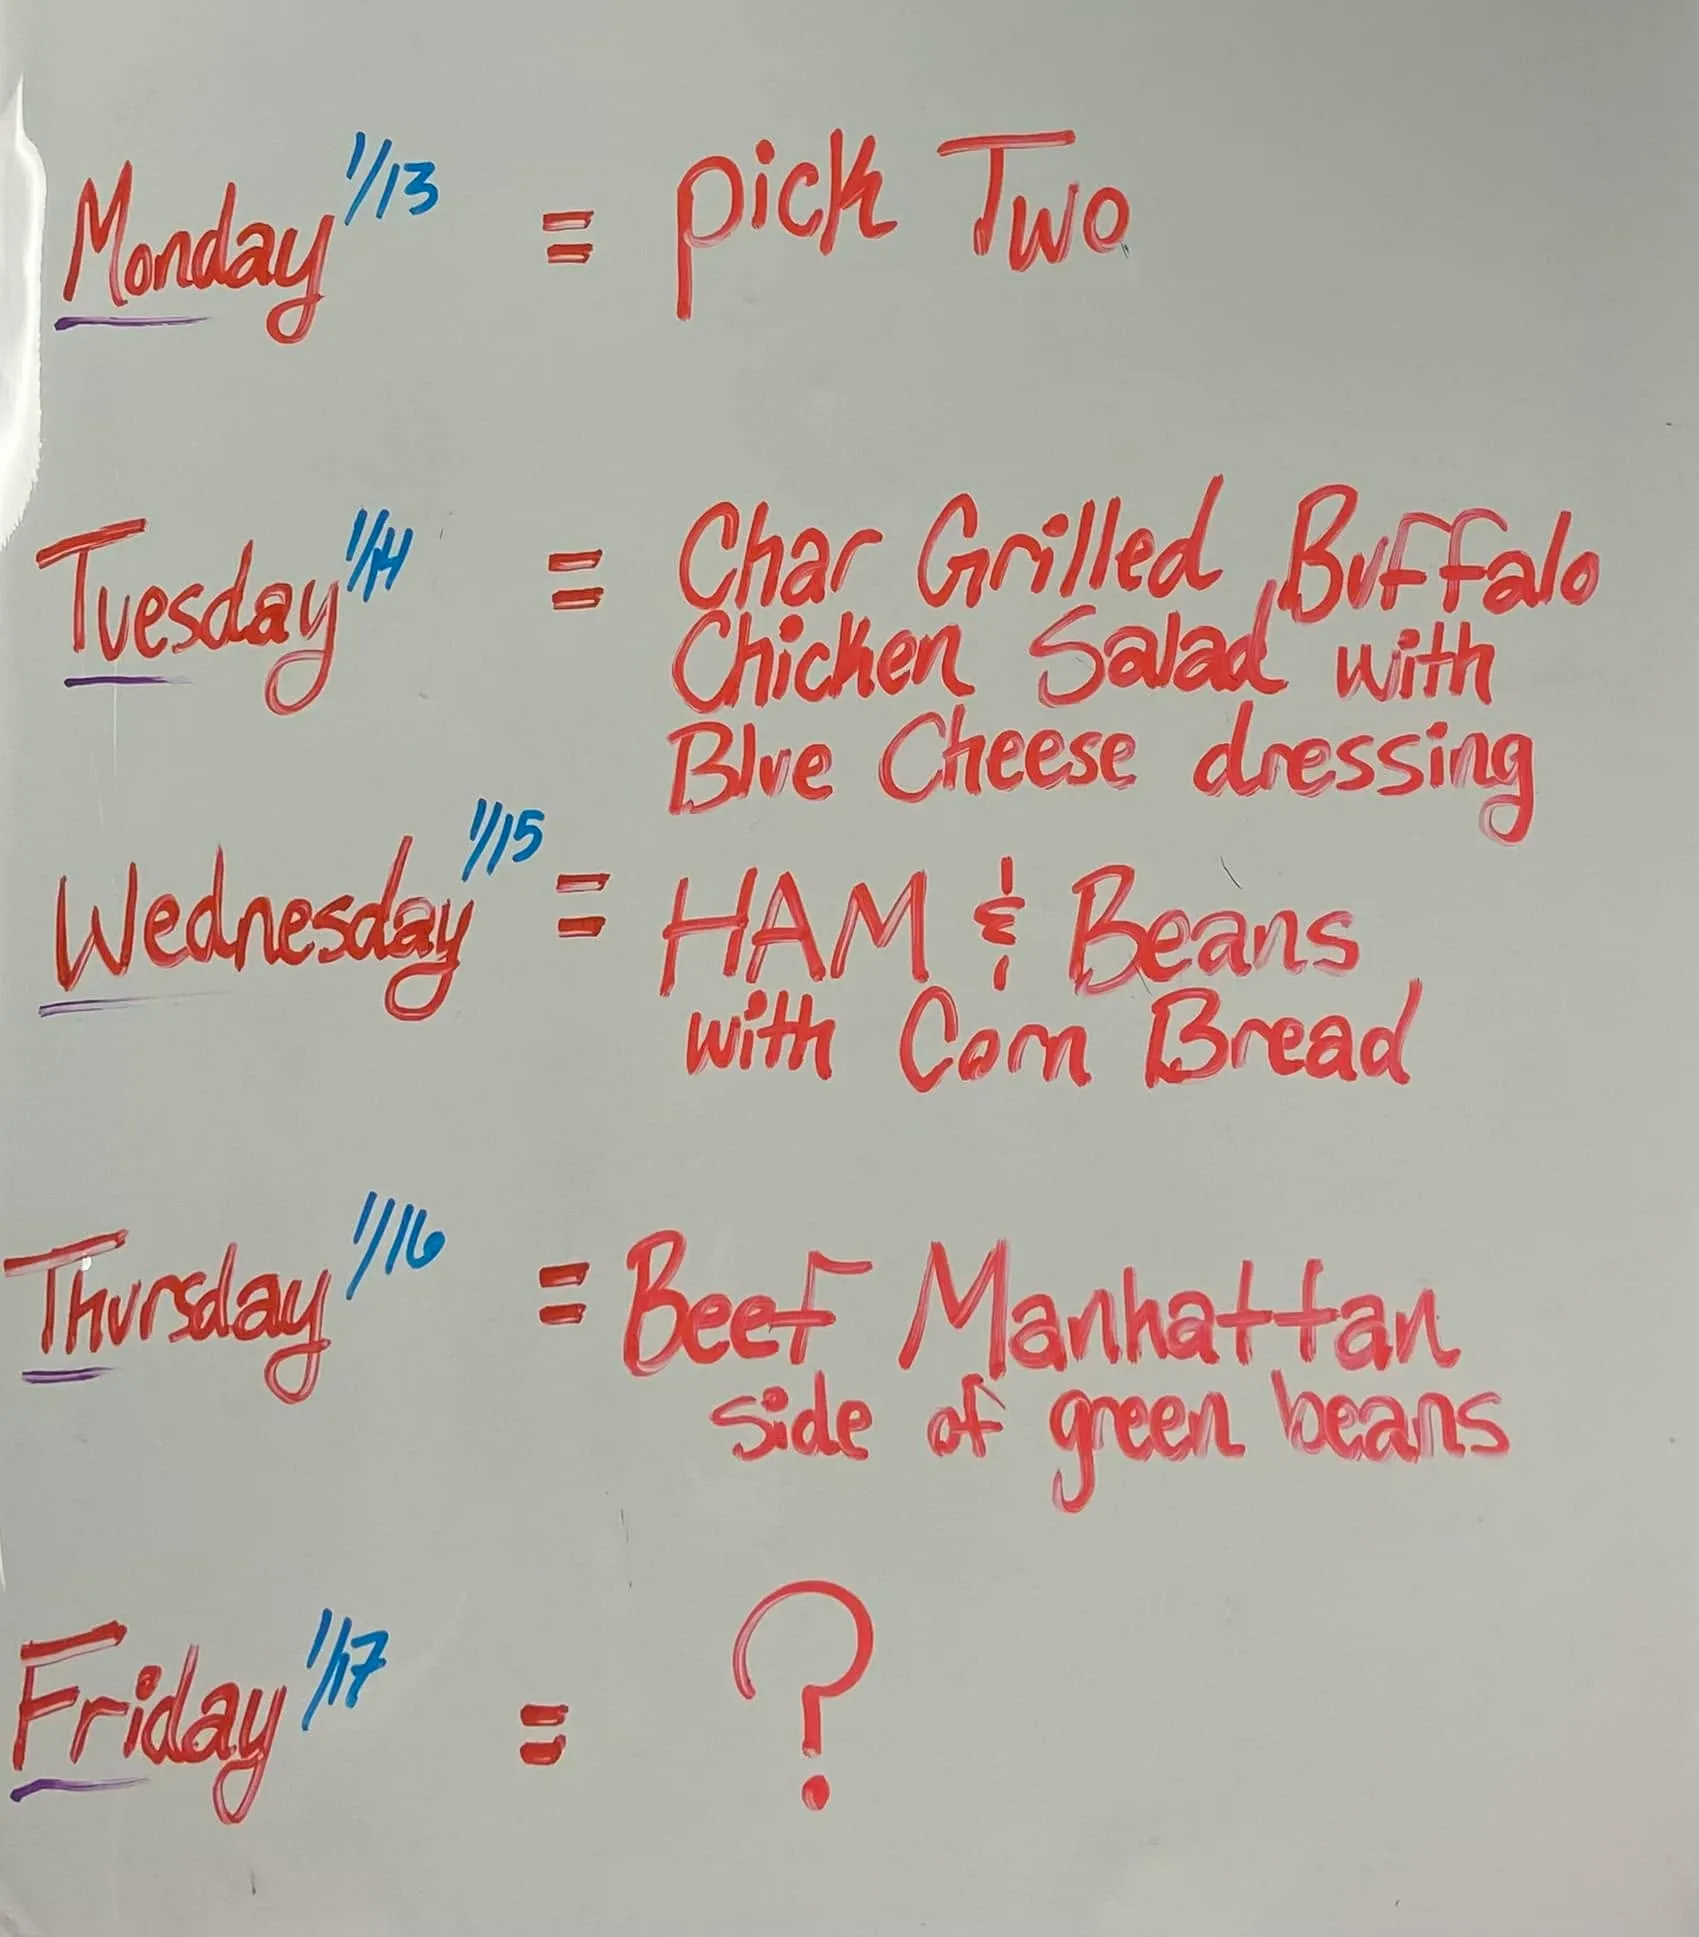 Monday 1/13 = Pick Two
Tuesday 1/14 = Char Grilled Buffalo
Chicken Salad with
Blue Cheese dressing
Wednesday 1/15 = HAM & Beans
with Corn Bread
Thursday 1/16 = Beef Manhattan
side of green beans
Friday 1/17 = ?